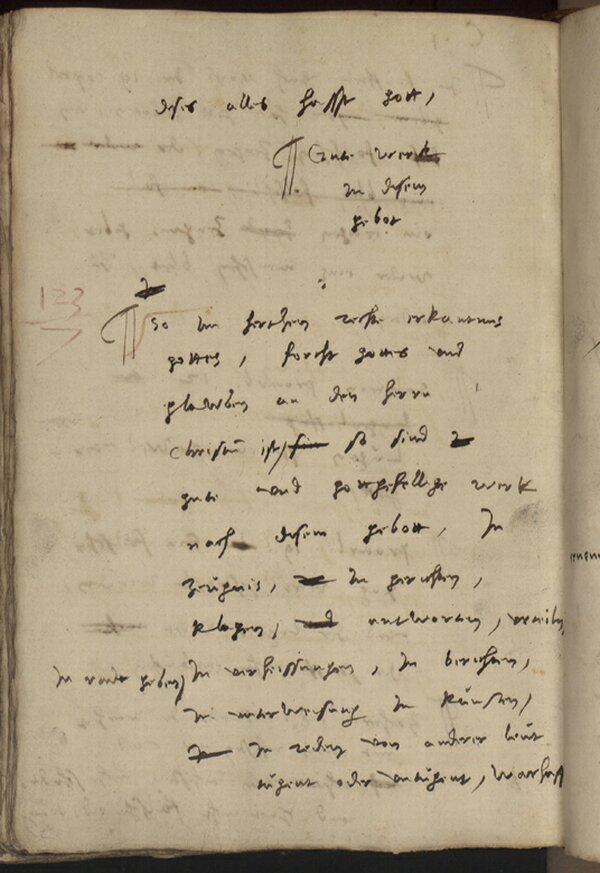 dises alles hasst gott,
¶ Gute werk
In disem
gebot
123
¶ So Im hertzen rechte erkantnus
gottes, forcht gottes und
glawben an den herrn
Christum ist, so sind
gute und gottgefellige werk
nach disem gebott, In
Zeugnis, In gerichten,
klagen, antworten,
In radt geben, In verheissungen, In berichten,
In unterweisung In künsten,
In reden von anderer leut
tugent oder untugent, warhafft